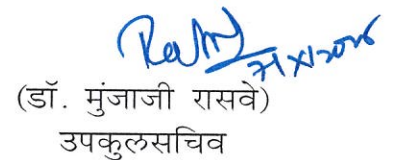 (डॉ. मुंजाजी रासवे)
उपकुलसचिव